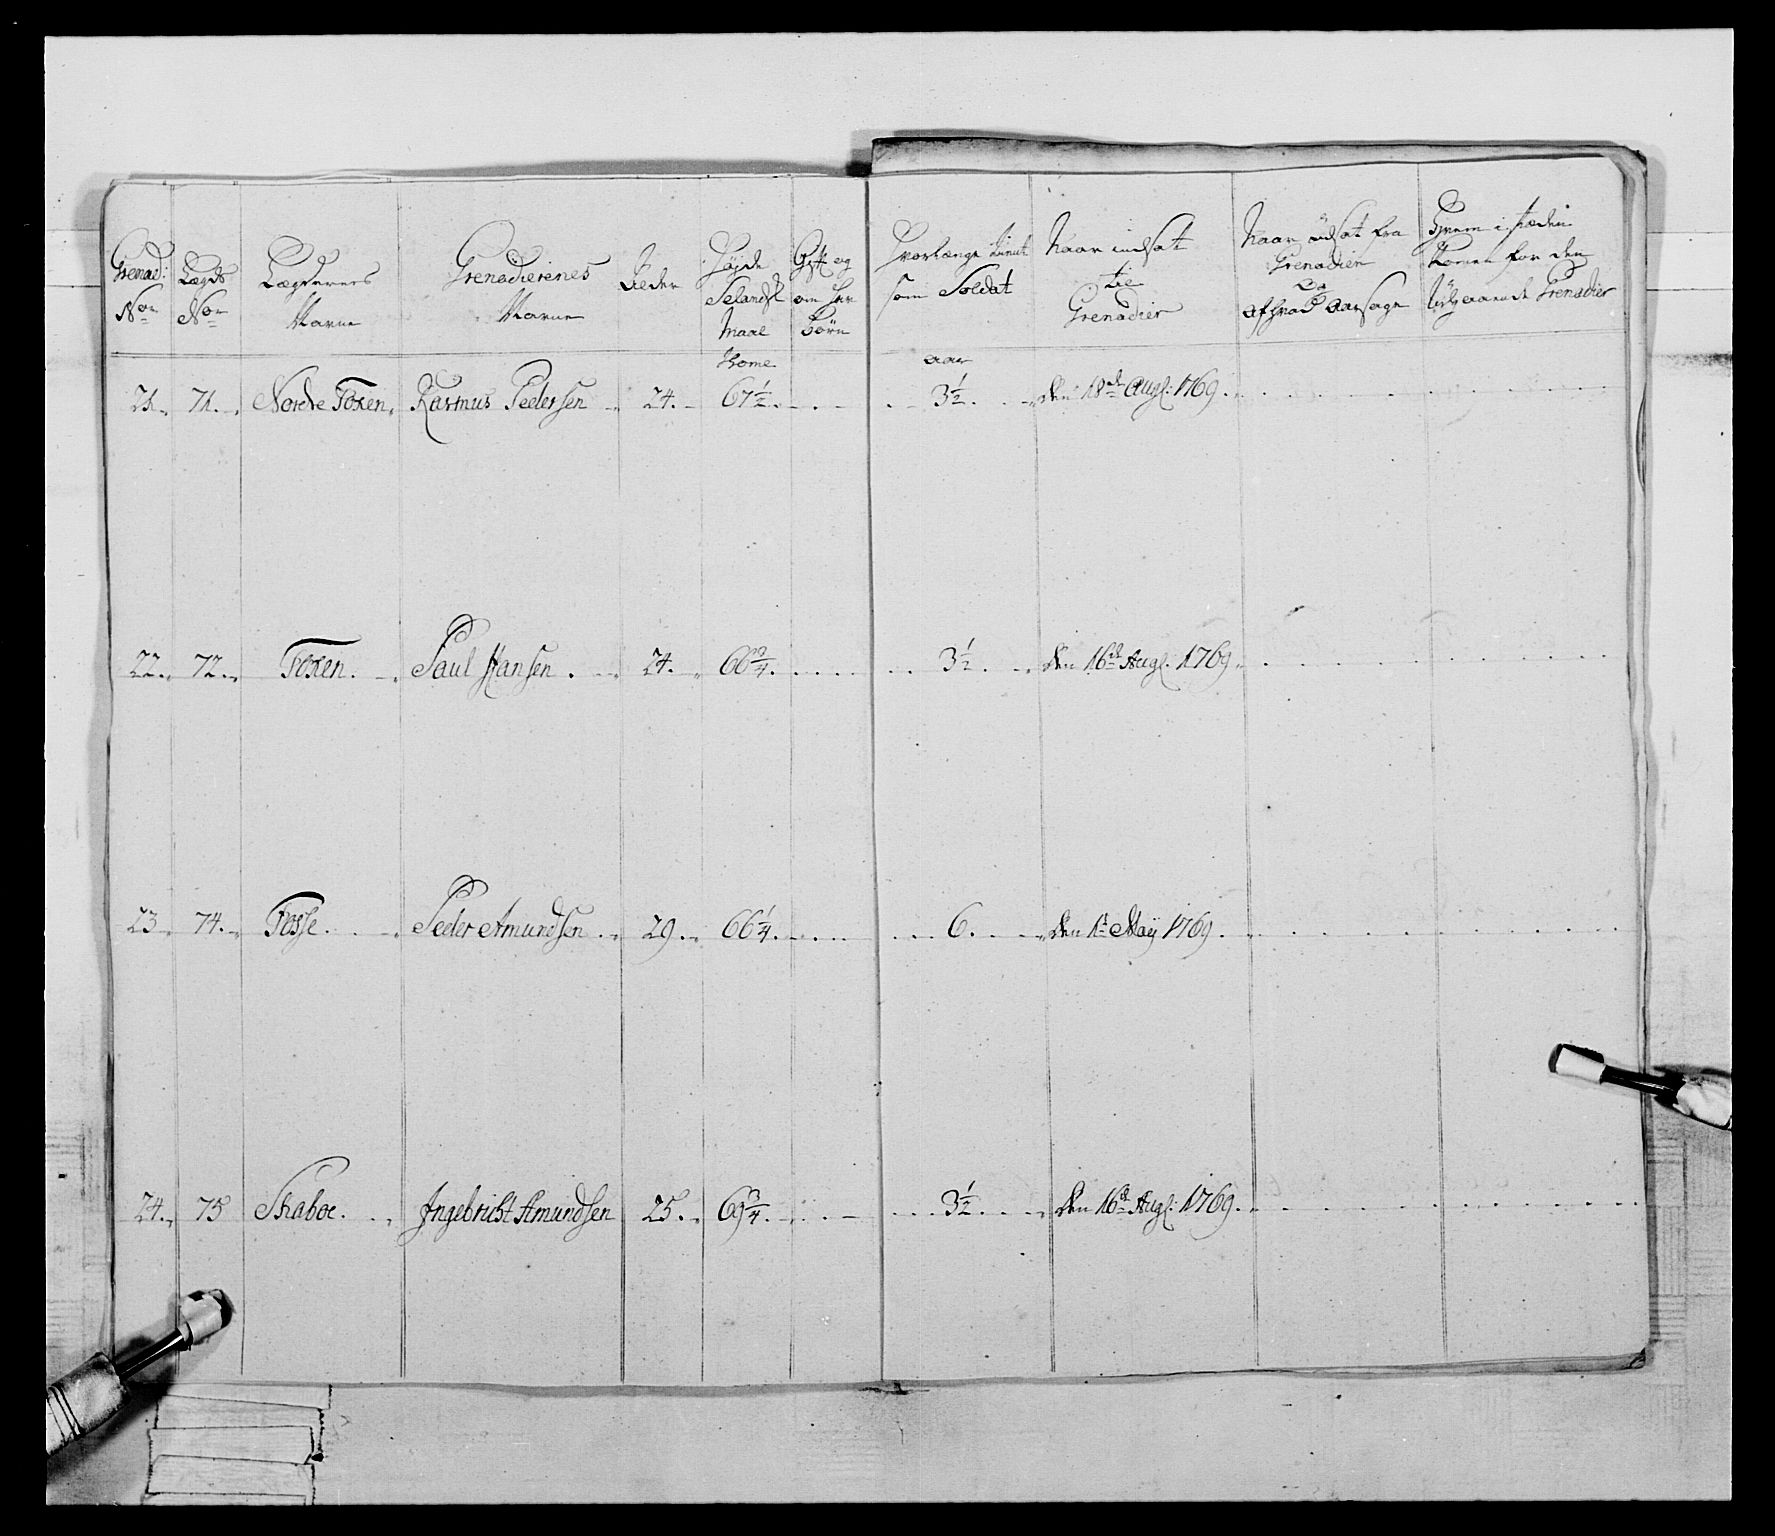 Grenad: No | Lægds No | Lægdernes Navne | Grenadierenes Navne | Alder | Højde Selandsk Maal | Gift og om har Børn | Hvorlænge tient som Soldat | Naar indsat til Grenadier | Naar udsat fra Grenadier og af hvad Aarsage | Hvem i stæden kommen for den udgaaende Grenadier
Tome | aar
21. | 71. | Nordre Foxen | Rasmus Pedersen | 24. | 67½. | 3½. | den 18de Augs: 1769.
22. | 72. | Foxen. | Paul Hansen. | 24. | 66¾. | 3½. | den 16de Augs: 1769.
23 | 74. | Fosse. | Peder Amundsen. | 29. | 66¼. | 6. | den 1te Maij 1769.
24. | 75 | Skaboe. | Ingebricht Amundsen | 25. | 69¾. | 3½. | den 16de Augs: 1769.